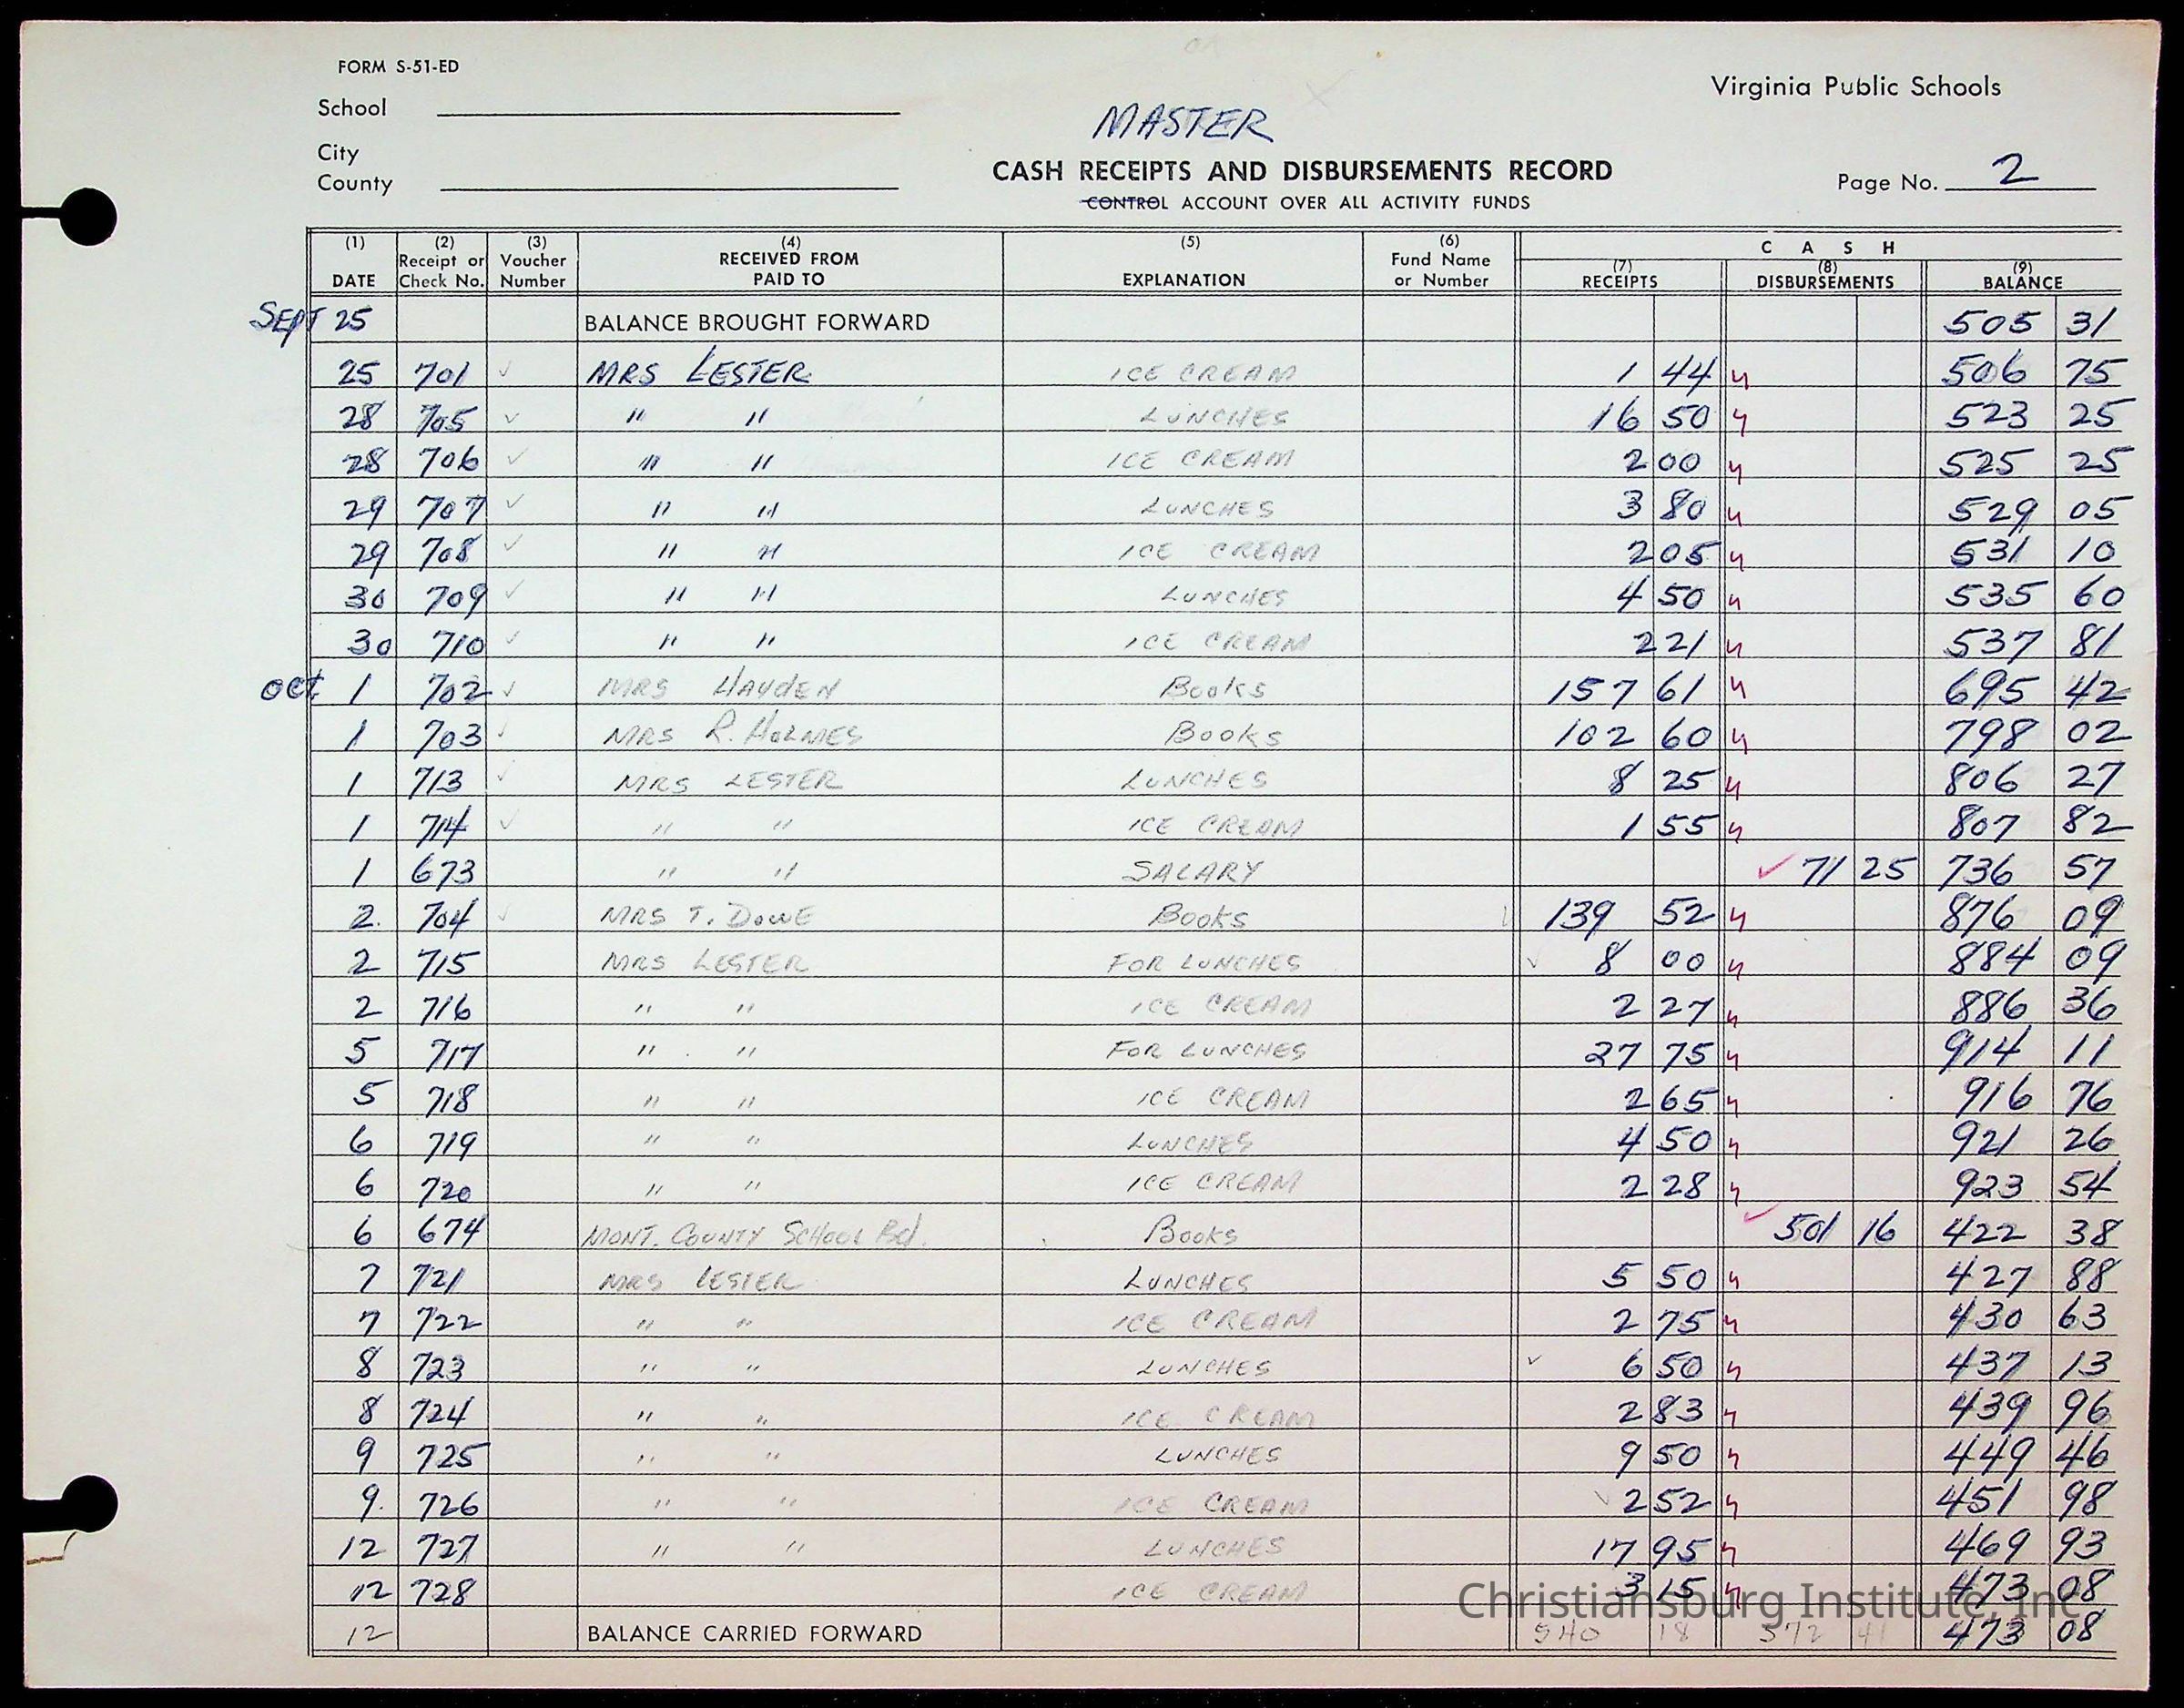 FORM S-51-ED
Virginia Public Schools
School
MASTER
City
County
CASH RECEIPTS AND DISBURSEMENTS RECORD
Page No. 2
CONTROL ACCOUNT OVER ALL ACTIVITY FUNDS
(1) DATE (2) Receipt or Check No. (3) Voucher Number (4) RECEIVED FROM PAID TO (5) EXPLANATION (6) Fund Name or Number CASH (7) RECEIPTS (8) DISBURSEMENTS (9) BALANCE
SEPT 25 BALANCE BROUGHT FORWARD 505 31
25 701 ✓ MRS LESTER ICE CREAM 1 44 506 75
28 705 ✓ " " LUNCHES 16 50 523 25
28 706 ✓ " " ICE CREAM 2 00 525 25
29 707 ✓ " " LUNCHES 3 80 529 05
29 708 ✓ " " ICE CREAM 2 05 531 10
30 709 ✓ " " LUNCHES 4 50 535 60
30 710 ✓ " " ICE CREAM 2 21 537 81
oct 1 702 ✓ MRS HAYDEN Books 157 61 695 42
1 703 ✓ MRS R. HOLMES Books 102 60 798 02
1 713 ✓ MRS LESTER LUNCHES 8 25 806 27
1 714 ✓ " " ICE CREAM 1 55 807 82
1 673 " " SALARY ✓ 71 25 736 57
2. 704 ✓ MRS T. DOWE Books 139 52 876 09
2 715 MRS LESTER FOR LUNCHES ✓ 8 00 884 09
2 716 " " ICE CREAM 2 27 886 36
5 717 " " FOR LUNCHES 27 75 914 11
5 718 " " ICE CREAM 2 65 916 76
6 719 " " LUNCHES 4 50 921 26
6 720 " " ICE CREAM 2 28 923 54
6 674 MONT. COUNTY SCHOOL Bd. Books ✓ 501 16 422 38
7 721 MRS LESTER LUNCHES 5 50 427 88
7 722 " " ICE CREAM 2 75 430 63
8 723 " " LUNCHES ✓ 6 50 437 13
8 724 " " ICE CREAM 2 83 439 96
9 725 " " LUNCHES 9 50 449 46
9. 726 " " ICE CREAM ✓ 2 52 451 98
12 727 " " LUNCHES 17 95 469 93
12 728 ICE CREAM 3 15 473 08
Christiansburg Institute, Inc
12 BALANCE CARRIED FORWARD 540 18 572 41 473 08